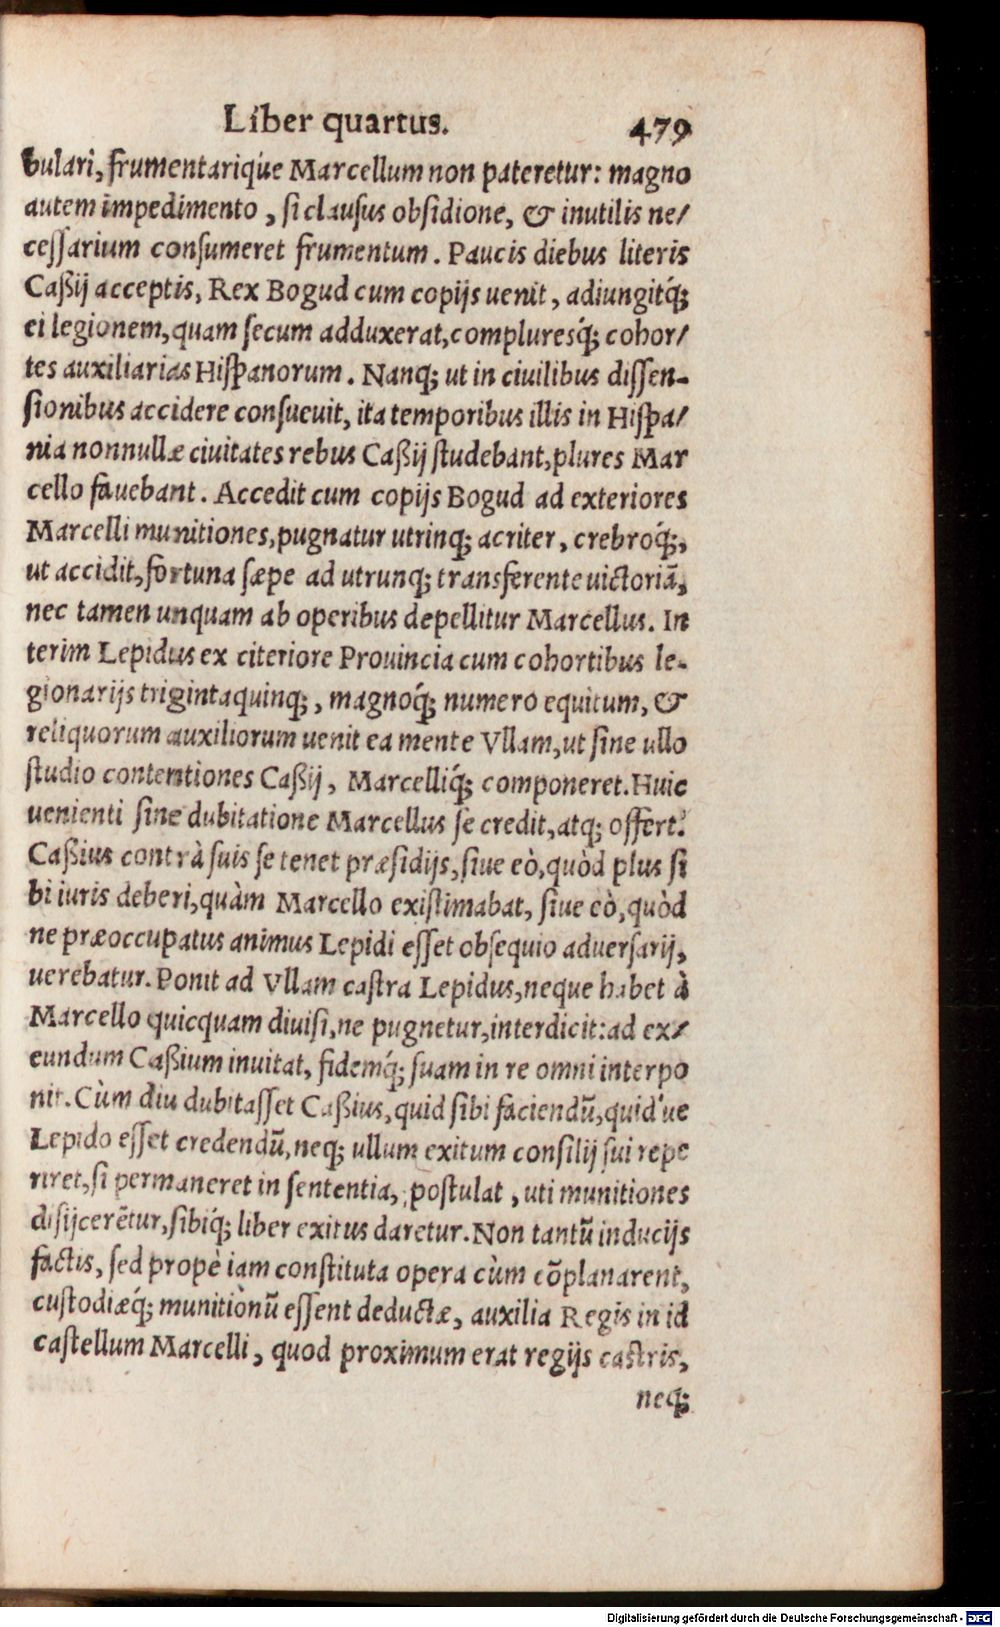 Liber quartus. 479
bulari, frumentariq́ue Marcellum non pateretur: magno
autem impedimento, si clausus obsidione, & inutilis ne/
cessarium consumeret frumentum. Paucis diebus literis
Caßij acceptis, Rex Bogud cum copijs uenit, adiungitq́;
ei legionem, quam secum adduxerat, compluresq́; cohor/
tes auxiliarias Hispanorum. Nanq; ut in ciuilibus dissen-
sionibus accidere consueuit, ita temporibus illis in Hispa/
nia nonnullæ ciuitates rebus Caßij studebant, plures Mar
cello fauebant. Accedit cum copijs Bogud ad exteriores
Marcelli munitiones, pugnatur utrinq; acriter, crebroq́;,
ut accidit, fortuna sæpe ad utrunq; transferente uictoriã,
nec tamen unquam ab operibus depellitur Marcellus. In
terim Lepidus ex citeriore Prouincia cum cohortibus le-
gionarijs trigintaquinq;, magnoq́; numero equitum, &
reliquorum auxiliorum uenit ea mente Vllam, ut sine ullo
studio contentiones Caßij, Marcelliq́; componeret. Huic
uenienti sine dubitatione Marcellus se credit, atq; offert:
Caßius contrà suis se tenet præsidijs, siue eò, quòd plus si
bi iuris deberi, quàm Marcello existimabat, siue eò, quòd
ne præoccupatus animus Lepidi esset obsequio aduersarij,
uerebatur. Ponit ad Vllam castra Lepidus, neque habet à
Marcello quicquam diuisi, ne pugnetur, interdicit: ad ex/
eundum Caßium inuitat, fidemq́; suam in re omni interpo
nit. Cùm diu dubitasset Caßius, quid sibi faciendũ, quid'ue
Lepido esset credendũ, neq; ullum exitum consilij sui repe
riret, si permaneret in sententia, postulat, uti munitiones
disijcerẽtur, sibiq́; liber exitus daretur. Non tantũ inducijs
factis, sed propè iam constituta opera cùm cõplanarent,
custodiæq́; munitionũ essent deductæ, auxilia Regis in id
castellum Marcelli, quod proximum erat regijs castris,
neq;
Digitalisierung gefördert durch die Deutsche Forschungsgemeinschaft - DFG